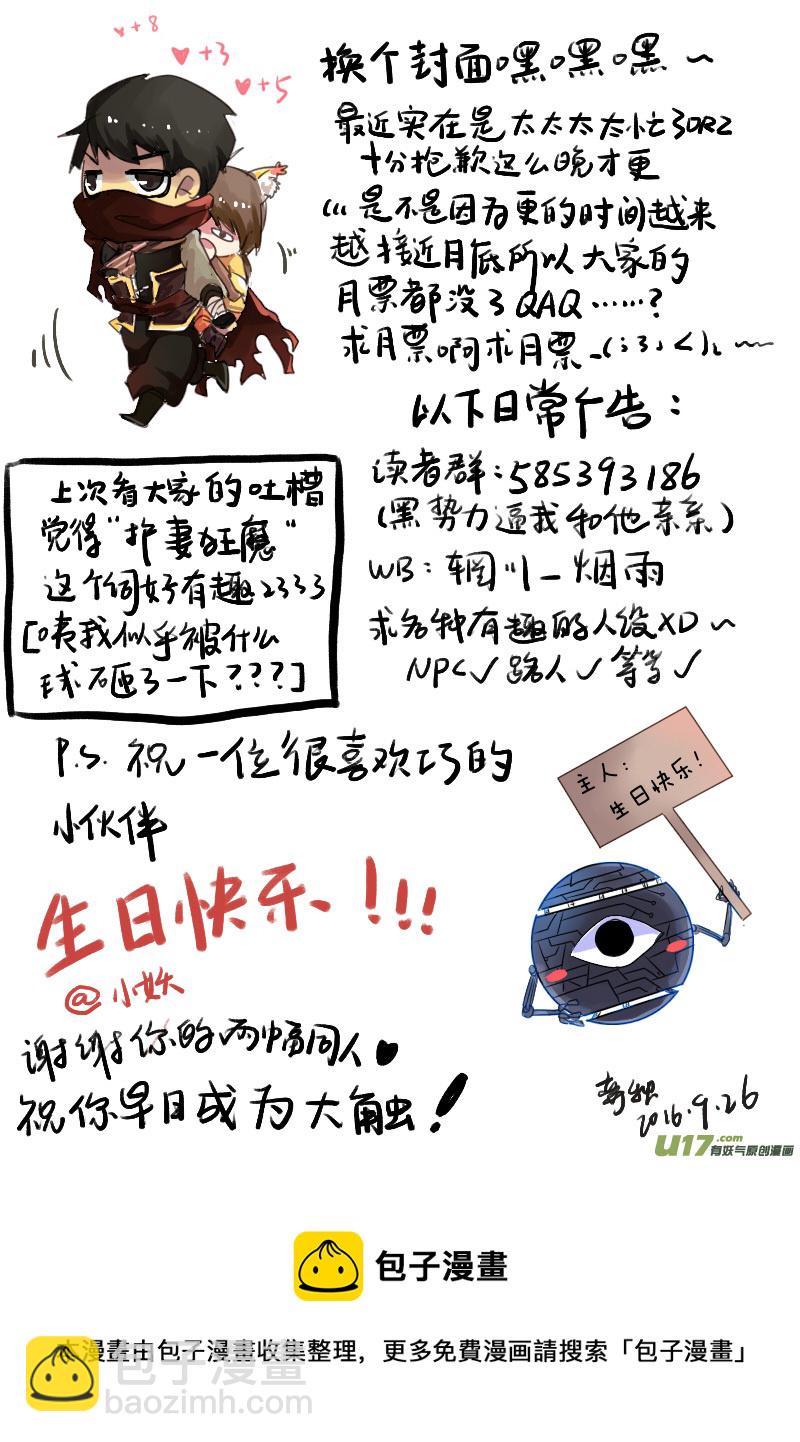 +8
+3
+5
换个封面嘿嘿嘿~
最近实在是太太太太忙了ORZ
十分抱歉这么晚才更
(((是不是因为更的时间越来
越接近月底所以大家的
月票都没了QAQ……?
求月票啊求月票_(:3」∠)_~~
以下日常广告:
读者群:585393186
(黑势力逼我和他亲亲)
WB:辋川_烟雨
求各种有趣的人设XD~
NPC✓路人✓等等✓
上次看大家的吐槽
觉得"护妻狂魔"
这个词好有趣2333
[咦我似乎被什么
球砸了一下???]
P.S. 祝一位很喜欢巧的
小伙伴
主人:
生日快乐!
生日快乐!!!
@小妖
谢谢你的两幅同人♥
祝你早日成为大触!
2016.9.26
U17.com
有妖气原创漫画
包子漫畫
本漫畫由包子漫畫收集整理,更多免費漫画請搜索「包子漫畫」
包子漫畫
baozimh.com